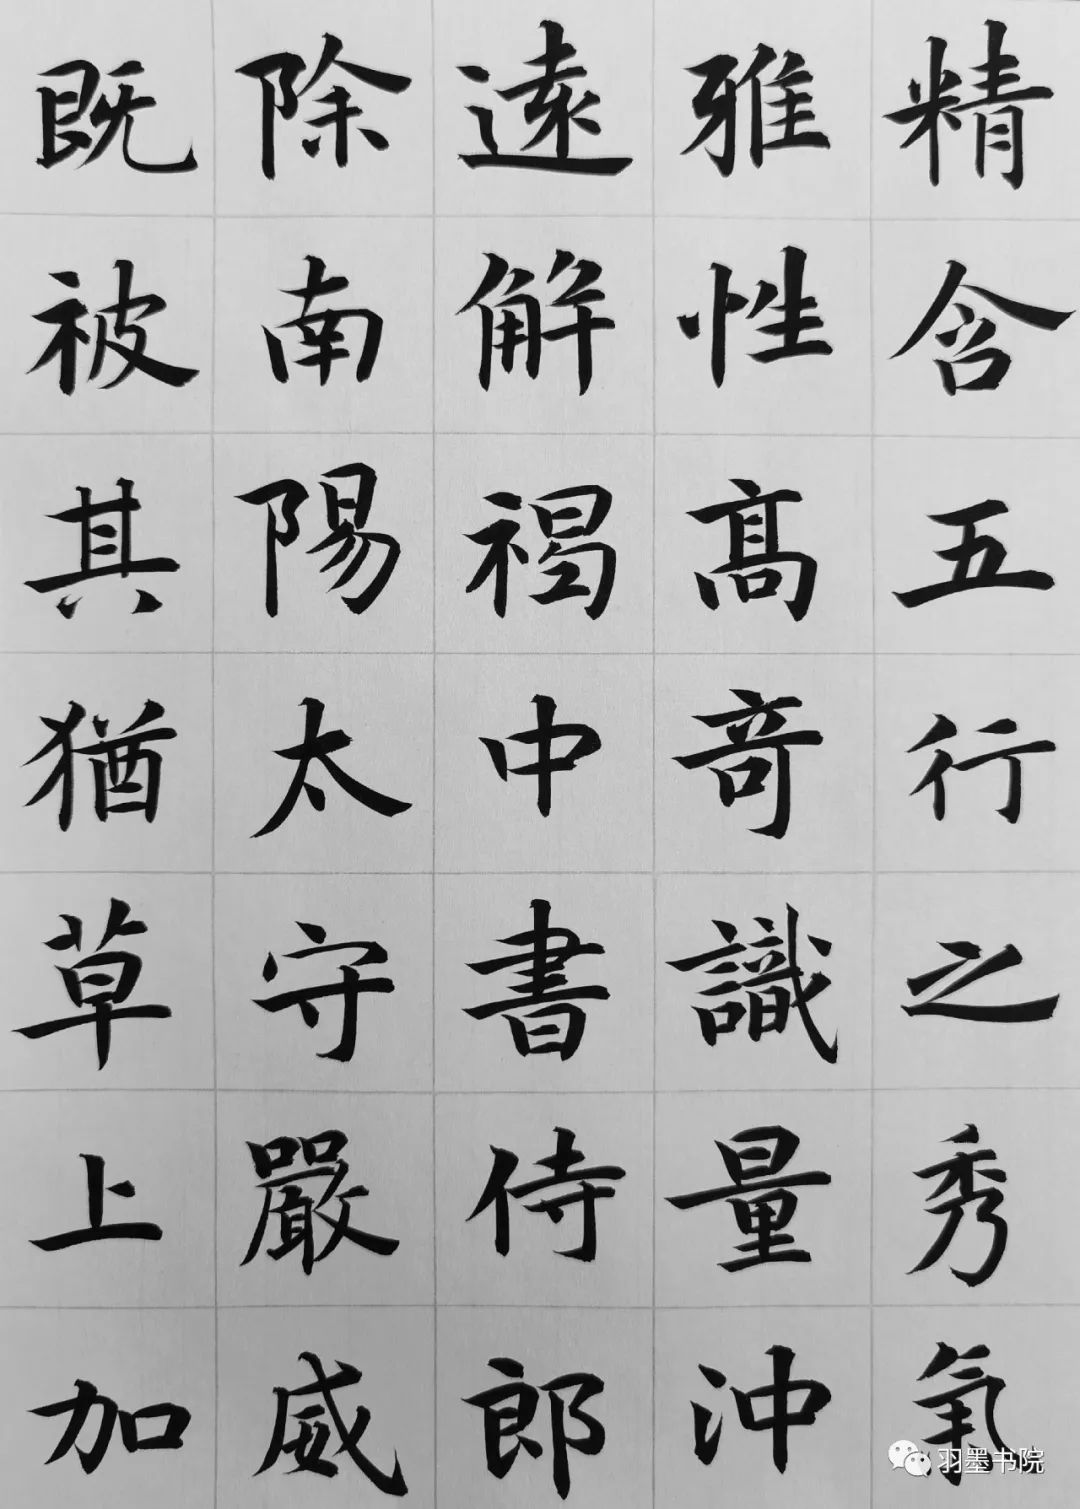 精含五行之秀氣
雅性髙竒識量沖
逺解褐中書侍郎
除南陽太守嚴威
既被其猶草上加
羽墨书院